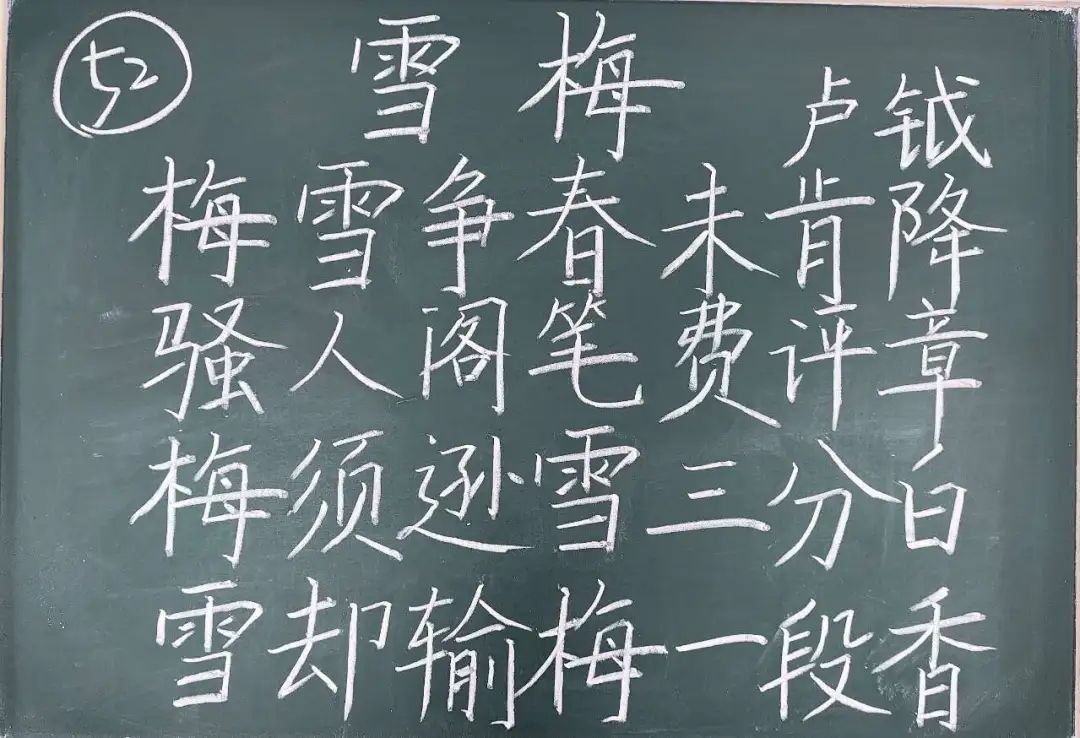 52
雪梅
卢钺
梅雪争春未肯降
骚人阁笔费评章
梅须逊雪三分白
雪却输梅一段香